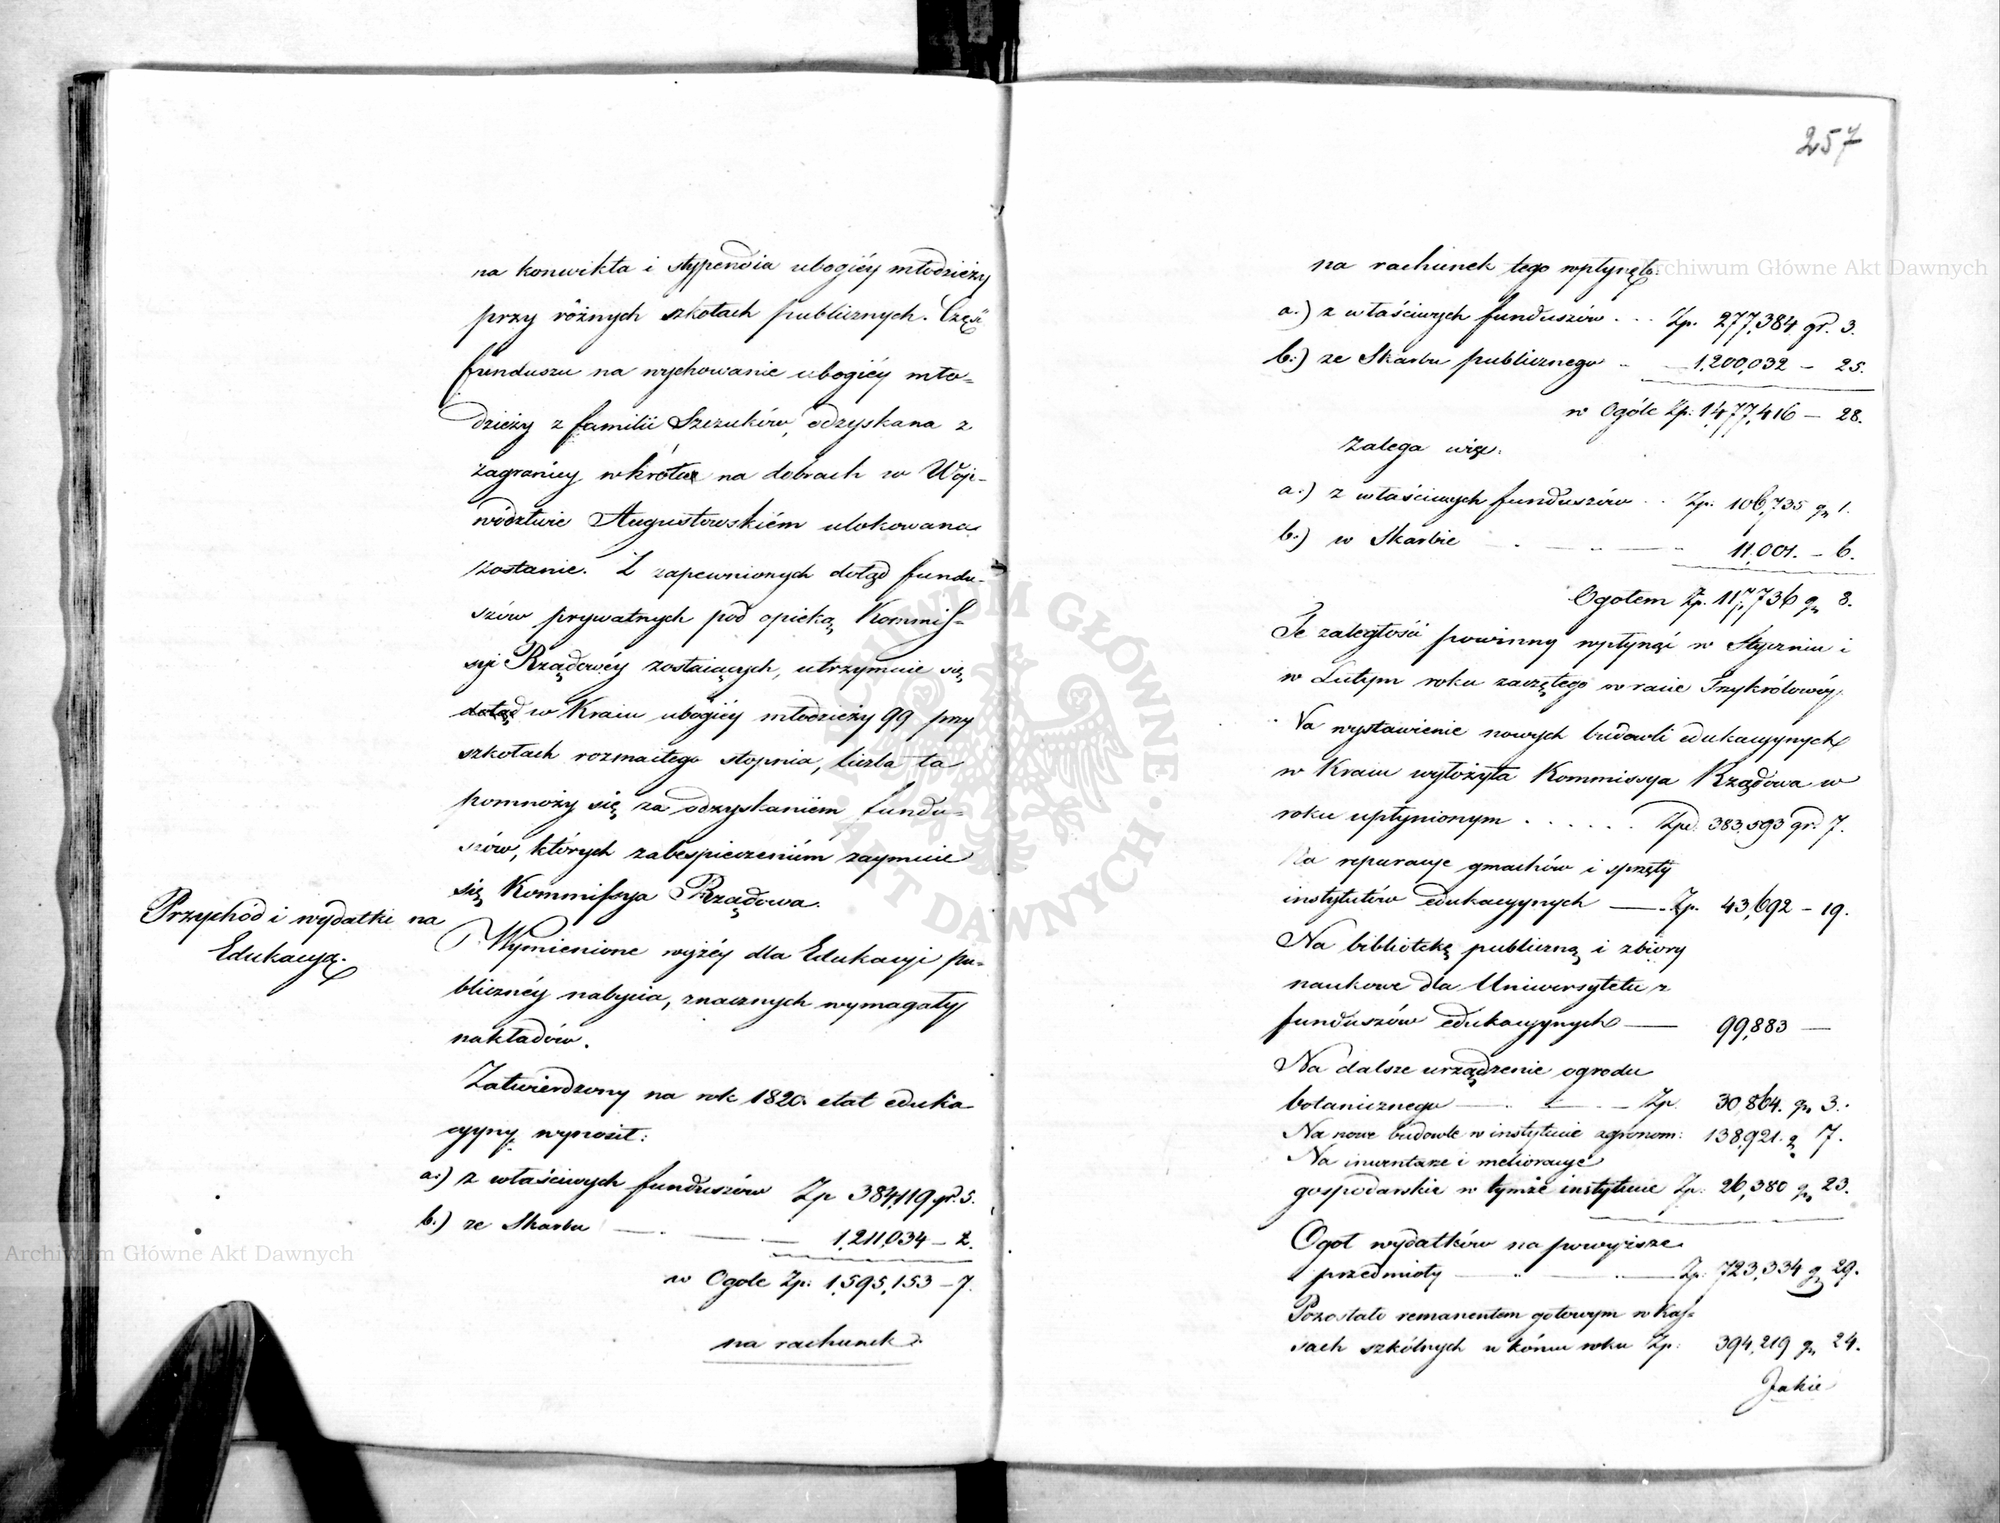 na konwikta i stypendia ubogiéy młodzieży
przy różnych szkołach publicznych. Część
funduszu na wychowanie ubogiéy mło=
dzieży z familii Szczuków, odzyskana z
zagranicy wkrótce na dobrach w Woje-
wództwie Augustowskiém ulokowana
zostanie. Z zapewnionych dotąd fundu-
szów prywatnych pod opieką Kommis-
syi Rządowéy zostaiących, utrzymuie się
dotąd w Kraiu ubogiéy młodzieży 99 przy
szkołach rozmaitego stopnia, liczba ta
pomnoży się za odzyskaniem fundu-
szów, których zabespieczeniém zaymuie
się Kommissya Rządowa.
Przychód i wydatki na
Edukacyą.
Wymienione wyżéy dla Edukacyi pu=
blicznéy nabycia, znacznych wymagały
nakładów.
Zatwierdzony na rok 1820. etat eduka
cyyny wynosił:
a.) z właściwych funduszów Zp 384,119 gr. 5.
b.) ze Skarbu — 1,211,034 – 2.
w Ogóle Zp: 1,595,153 – 7.
na rachunek
257
na rachunek tego wpłynęło:
a.) z właściwych funduszów . . . Zp. 277,384 gr. 3.
b.) ze Skarbu publicznego — 1,200,032 – 25.
w Ogóle Zp: 1,477,416 – 28.
Zalega więc:
a.) z właściwych funduszów . . Zp. 106,735 gr 1.
b.) w Skarbie — 11,001. – 6.
Ogółem Zp. 117,736 gr 8.
Te zaległości powinny wpłynąć w Styczniu i
w Lutym roku zaczętego w racie Trzykrólowéy.
Na wystawienie nowych budowli edukacyynych
w Kraiu wyłożyła Kommissya Rządowa w
roku upłynionym . . . . . . Zp. 383,593 gr. 7.
Na reparacye gmachów i sprzęty
instytutów edukacyynych — Zp. 43,692 – 19.
Na bibliotekę publiczną i zbiory
naukowe dla Uniwersytetu z
funduszów edukacyynych — 99,883 —
Na dalsze urządzenie ogrodu
botanicznego — Zp. 30,864. gr 3.
Na nowe budowle w instytucie agronom: 138,921. g 7.
Na inwentarze i melioracye
gospodarskie w tymże instytucie Zp: 26,380 gr 23.
Ogół wydatków na powyższe
przedmioty — Zp: 723,334 gr 29.
Pozostało remanentem gotowym w Kas=
sach szkólnych w końcu roku Zp: 394,219 gr 24.
Jakie
Archiwum Główne Akt Dawnych
Archiwum Główne Akt Dawnych
ARCHIWUM GŁÓWNE · AKT DAWNYCH ·